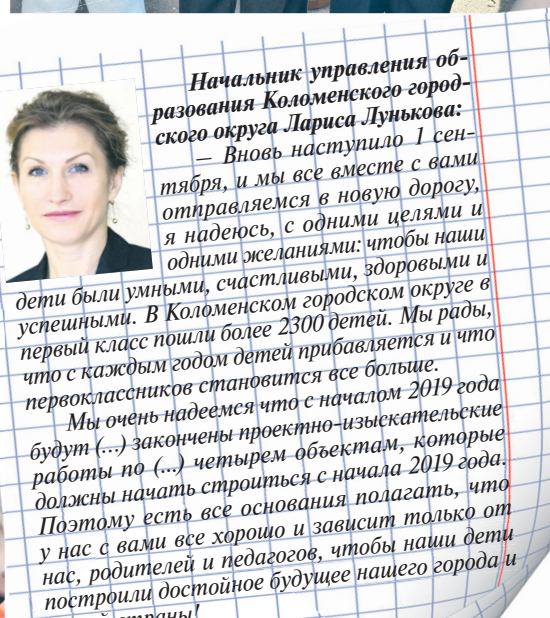 Начальник управления об-
разования Коломенского город-
ского округа Лариса Лунькова:
— Вновь наступило 1 сен-
тября, и мы все вместе с вами
отправляемся в новую дорогу,
я надеюсь, с одними целями и
одними желаниями: чтобы наши
дети были умными, счастливыми, здоровыми и
успешными. В Коломенском городском округе в
первый класс пошли более 2300 детей. Мы рады,
что с каждым годом детей прибавляется и что
первоклассников становится все больше.
Мы очень надеемся что с началом 2019 года
будут (...) закончены проектно-изыскательские
работы по (...) четырем объектам, которые
должны начать строиться с начала 2019 года.
Поэтому есть все основания полагать, что
у нас с вами все хорошо и зависит только от
нас, родителей и педагогов, чтобы наши дети
построили достойное будущее нашего города и
страны!